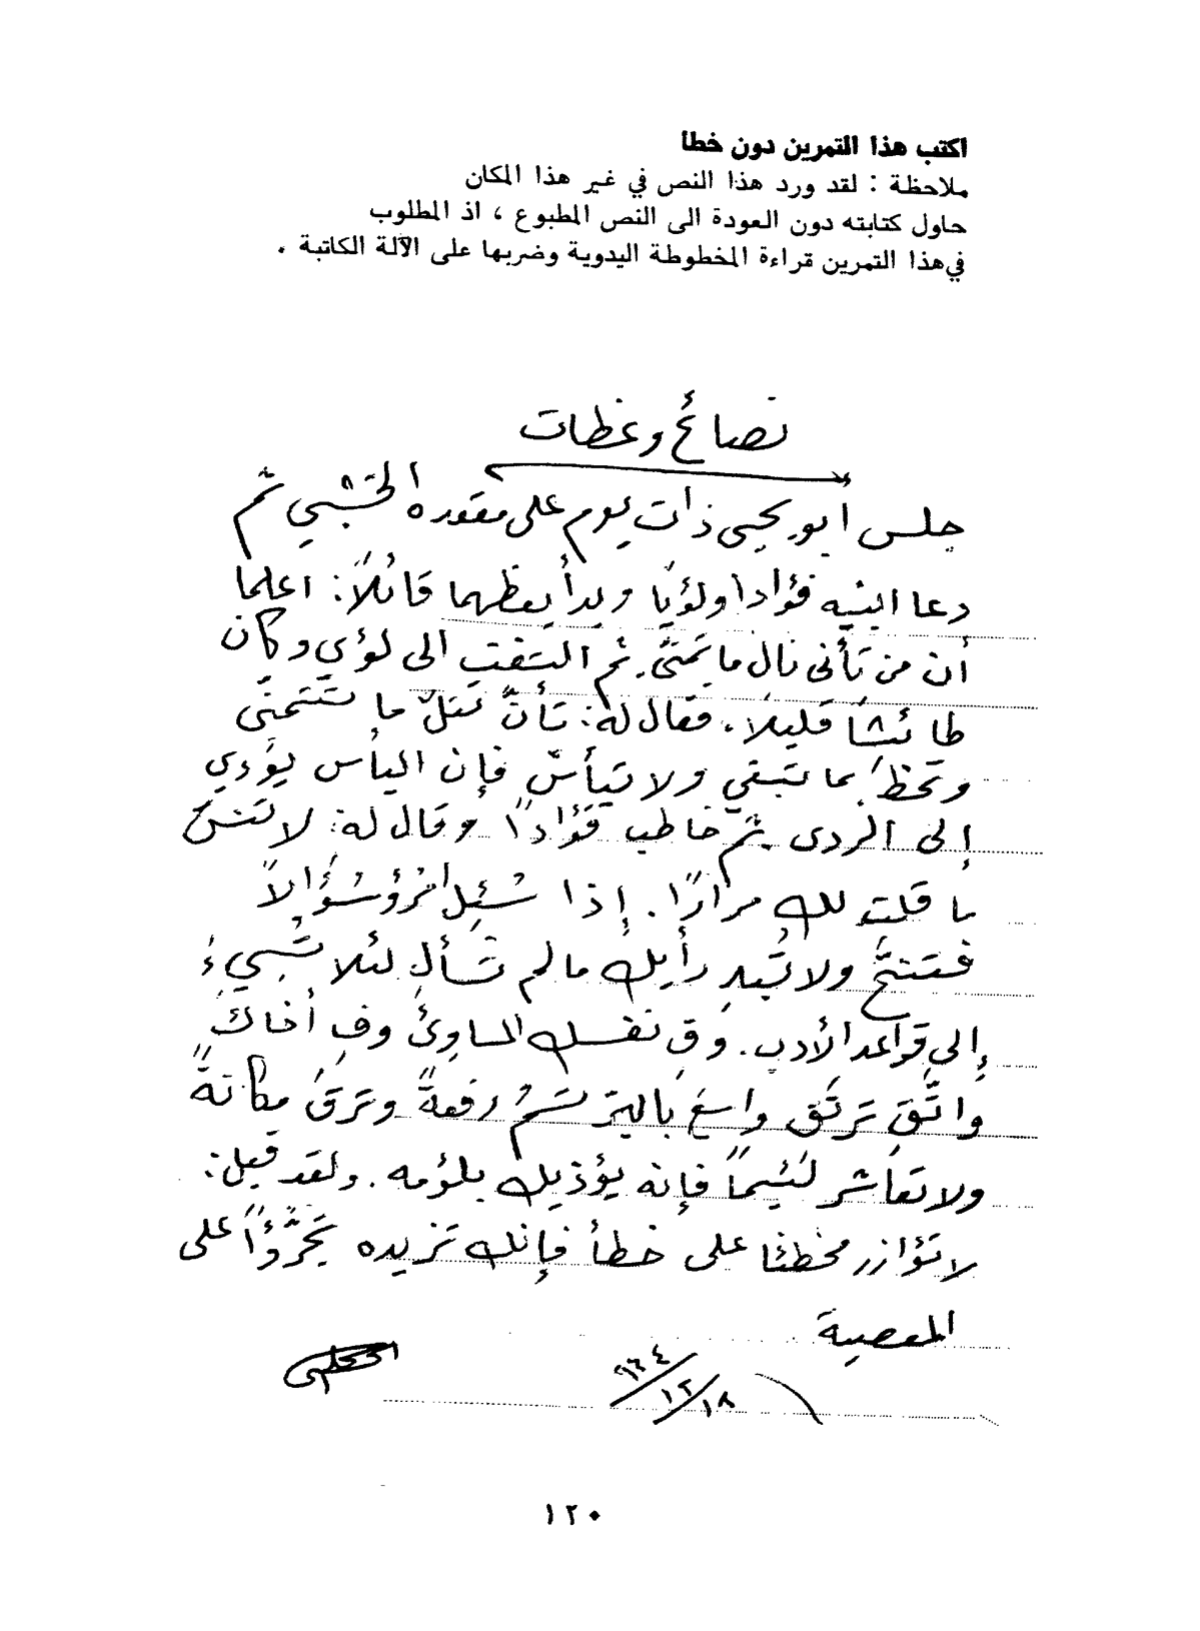 اكتب هذا التمرين دون خطأ
ملاحظة : لقد ورد هذا النص في غير هذا المكان
حاول كتابته دون العودة الى النص المطبوع ، اذ المطلوب
في هذا التمرين قراءة المخطوطة اليدوية وضربها على الآلة الكاتبة .
نصائح وعظات
جلس أبو يحيى ذات يوم على مقعده الخشبي ثم
دعا ابنيه فؤادا ولؤيا وبدأ يعظهما قائلاً: اعلما
أن من تأنى نال ما تمنى. ثم التفت الى لؤي وكان
طائشاً قليلا، فقال له: تأنَّ تنلْ ما تتمنى
وتحظَ بما تبتغي ولا تيأسْ فإن اليأس يؤدي
إلى الردى. ثم خاطب فؤاداً وقال له: لا تنسَ
ما قلت لك مرارًا. إذا سُئِل امرُؤ سُؤَالاً
فتنحَّ ولا تُبدِ رأيك ما لم تُسأل لئلا تُسيءَ
إلى قواعد الأدب. وقِ نفسك المساوئَ وفِ أخاكَ
واتَّقِ تَرتَقِ واسعَ بالبِرّ تَسْمُ رفعةً وترقَ مكانةً
ولا تعاشر لئيماً فإنه يؤذيك بلؤمه. ولقد قيل:
لا تؤازر مخطئا على خطأ فإنك تزيده تجرُّؤاً على
المعصية
١٢٠